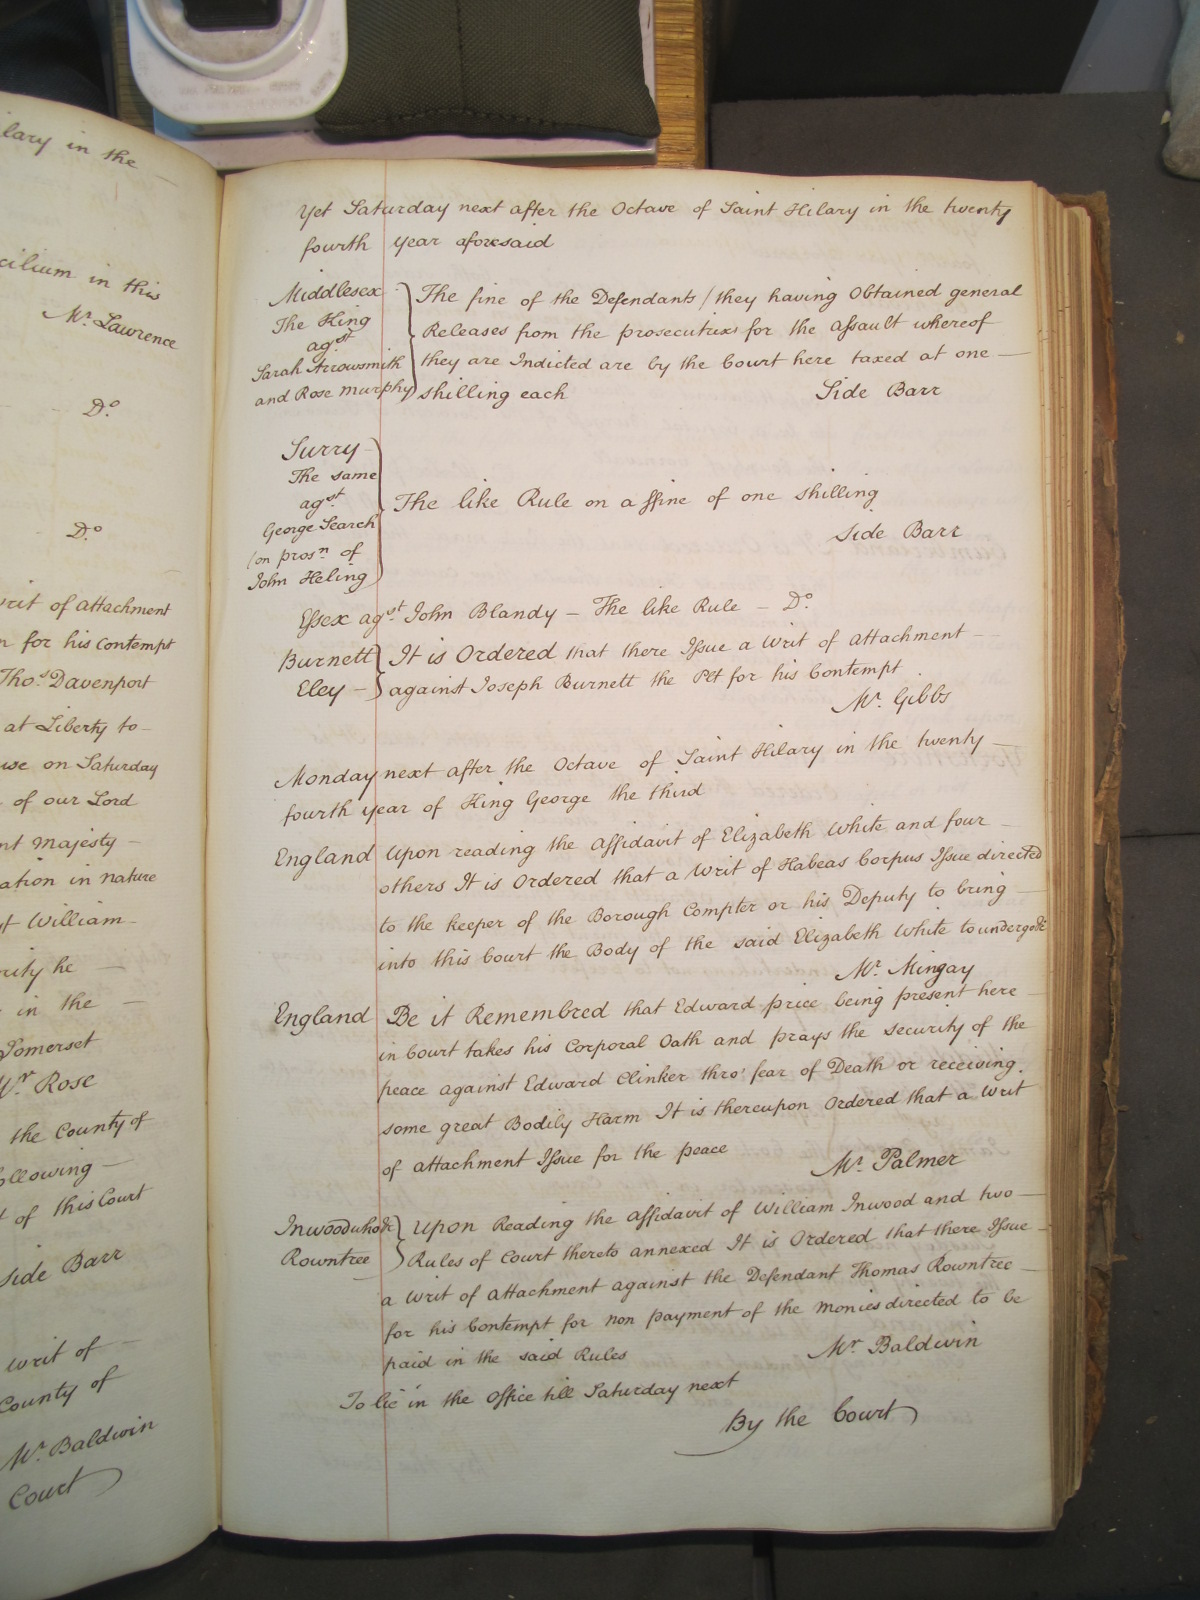 lary in the
cilium in this
Mr. Lawrence
Do.
Do.
writ of attachment
for his Contempt
Thos. Davenport
at Liberty to
use on Saturday
of our Lord
nt Majesty
ation in nature
William
rity he
in the
Somerset
Wr Rose
the County of
ollowing
of this Court
Side Barr
writ of
County of
Mr. Baldwin
Court
Yet Saturday next after the Octave of Saint Hilary in the twenty
fourth year aforesaid
Middlesex
The King
agst
Sarah Arrowsmith
and Rose Murphy
The fine of the Defendants (they having Obtained general
Releases from the prosecutrixs for the assault whereof
they are Indicted are by the Court here taxed at one
shilling each Side Barr
Surry
The same
agst.
George Search
(on prosn. of
John Heling
The like Rule on a ffine of one shilling
Side Barr
Essex agst. John Blandy - The like Rule - Do.
Burnett
Eley
It is Ordered that there Issue a Writ of attachment
against Joseph Burnett the Plt for his Contempt
Mr. Gibbs
Monday next after the Octave of Saint Hilary in the twenty
fourth year of King George the third
England Upon reading the affidavit of Elizabeth White and four
others It is Ordered that a Writ of Habeas Corpus Issue directed
to the keeper of the Borough Compter or his Deputy to bring
into this Court the Body of the said Elizabeth White to undergo &c
Mr. Mingay
England Be it Remembred that Edward price being present here
in Court takes his Corporal Oath and prays the security of the
peace against Edward Clinker thro' fear of Death or receiving
some great Bodily Harm It is thereupon Ordered that a Writ
of attachment Issue for the peace
Mr. Palmer
Inwood
Rowntree
Upon Reading the affidavit of William Inwood and two
Rules of Court thereto annexed It is Ordered that there Issue
a Writ of attachment against the Defendant Thomas Rowntree
for his Contempt for non payment of the monies directed to be
paid in the said Rules
Mr Baldwin
To lie in the Office till Saturday next
By the Court